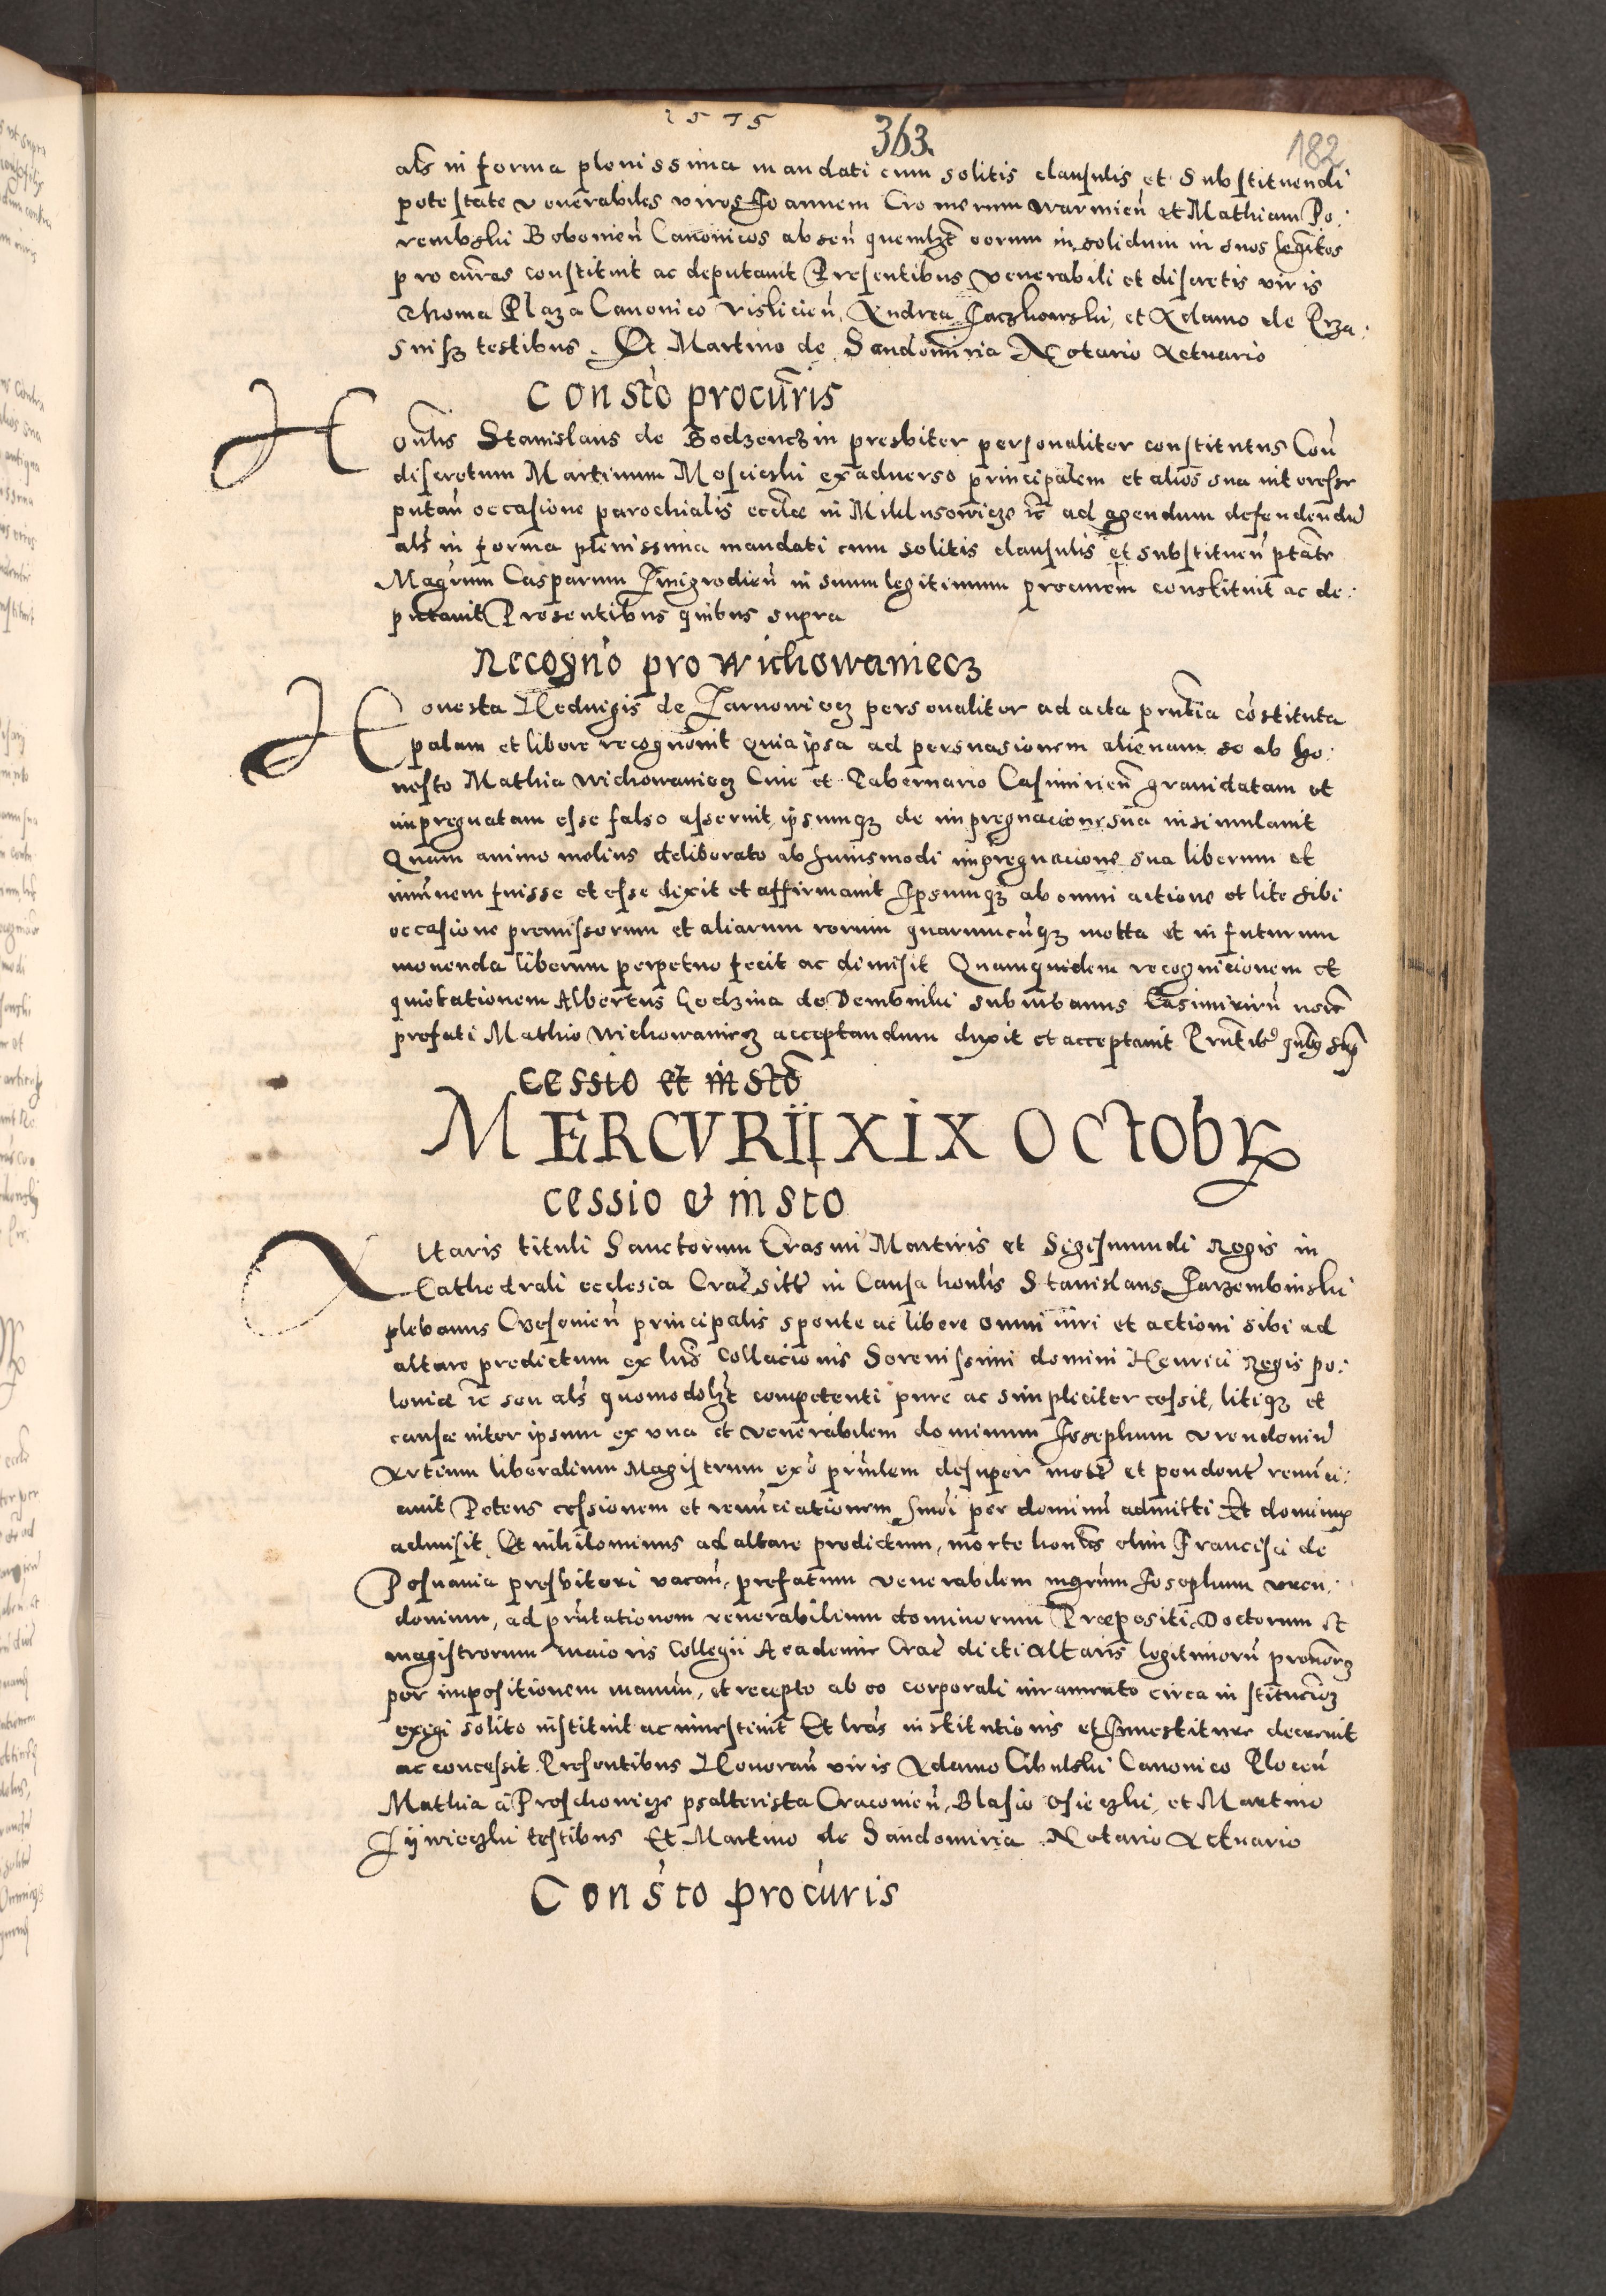 1575
363.
182
als in forma plenissima mandati cum solitis clausulis et substituendi
potestate venerabiles viros Joannem Cromerum warmien̄ et Mathiam Po:
rembski Bobonien̄ Canonicos absen̄ quemlꝫt eorum in solidum in suos legitos
procūres constituit ac deputauit Presentibus venerabili et discretis viris
Thoma Plaza Canonico vislicien̄, Andrea Jaczkowski, et Adamo de Prza:
snisz testibus. Et Martino de Sandomiria Notario Actuario
Consto procūris
Honlis Stanislaus de Bodzenczin presbiter personaliter constitutus Con̄
discretum Martinum Moscicski ex aduerso principalem et alios sua interesse
putan̄ occasione parochialis eccłæ in Miklusowicze ꝛc̄ ad agendum defendendū
als in forma plenissima mandati cum solitis clausulis et substituen̄ ptāte
Magrum Casparum Jmigrodien̄ in suum legitimum procurēm constituit ac de:
putauit Presentibus quibus supra
Recogn̄o pro Wichowaniecz
Honesta Heduigis de Jarnowiecz personaliter ad acta prn̄tia cōstituta
palam et libere recognouit Quia ipsa ad persuasionem alienam se ab Ho:
nesto Mathia Wichowaniecz Ciue et Tabernario Casimirien̄ grauidatam et
impregnatam esse falso asseruit, ipsumqꝫ de impregnacione sua insimulauit
Quam animo melius deliberato ab huiusmodi impregnacione sua liberum et
imūnem fuisse et esse dixit et affirmauit Ipsumqꝫ ab omni actione et lite sibi
occasione premissorum et aliarum rerum quarumcūqꝫ motta et in futurum
mouenda liberum perpetuo fecit ac dimisit Quamquidem recognicionem et
quietationem Albertus Godzina de Dembniki suburbanus Casimirien̄ noīe
prefati Mathie Wichowaniecz acceptandum duxit et acceptauit Prn̄tibꝰ quibꝰ sup̄
cessio et insto
MERCVRII XIX OCtobrꝭ
cessio & insto
Altaris tituli Sanctorum Erasmi Martiris et Sigismundi Regis in
Cathedrali ecclesia Crac̄ siti in Causa honlis Stanislaus Jarzembinski
plebanus Cresonien̄ principalis sponte ac libere omni iuri et actioni sibi ad
altare predictum ex lrīs Collacionis Serenissimi domini Henrici Regis po:
loniæ ꝛc̄ seu als quomodolꝫt competenti pure ac simpliciter cessit, litiqꝫ et
causæ inter ipsum ex vna et venerabilem dominum Josephum vrendoniū
Artium liberalium Magistrum exᵒ prin̄lem desuper motē et pendentē renūci:
auit Petens cessionem et renūciationem hmōi per dominū admitti Et dominꝰ
admisit. Et nihilominus ad altare predictum, morte honlis olim Francisci de
Posnania presbiteri vacan̄, prefatum venerabilem mgrum Josephum vren:
donium, ad prn̄tationem venerabilium dominorum Præpositi Doctorum et
magistrorum maioris Collegii Academie Crac̄ dicti altaris legitimorū pronorꝫ
per impositionem manuū, et recepto ab eo corporali iuramento circa institucioꝫ
exigi solito instituit ac inuestiuit Et lrās institutionis et Inuestiture decreuit
ac concessit. Presentibus Honoran̄ viris Adamo Cibulski Canonico Plocen̄
Mathia à Proschowicze psalterista Cracouien̄, Blasio Osieczki, et Martino
Jÿwieczki testibus Et Martino de Sandomiria Notario Actuario
Consto procūris